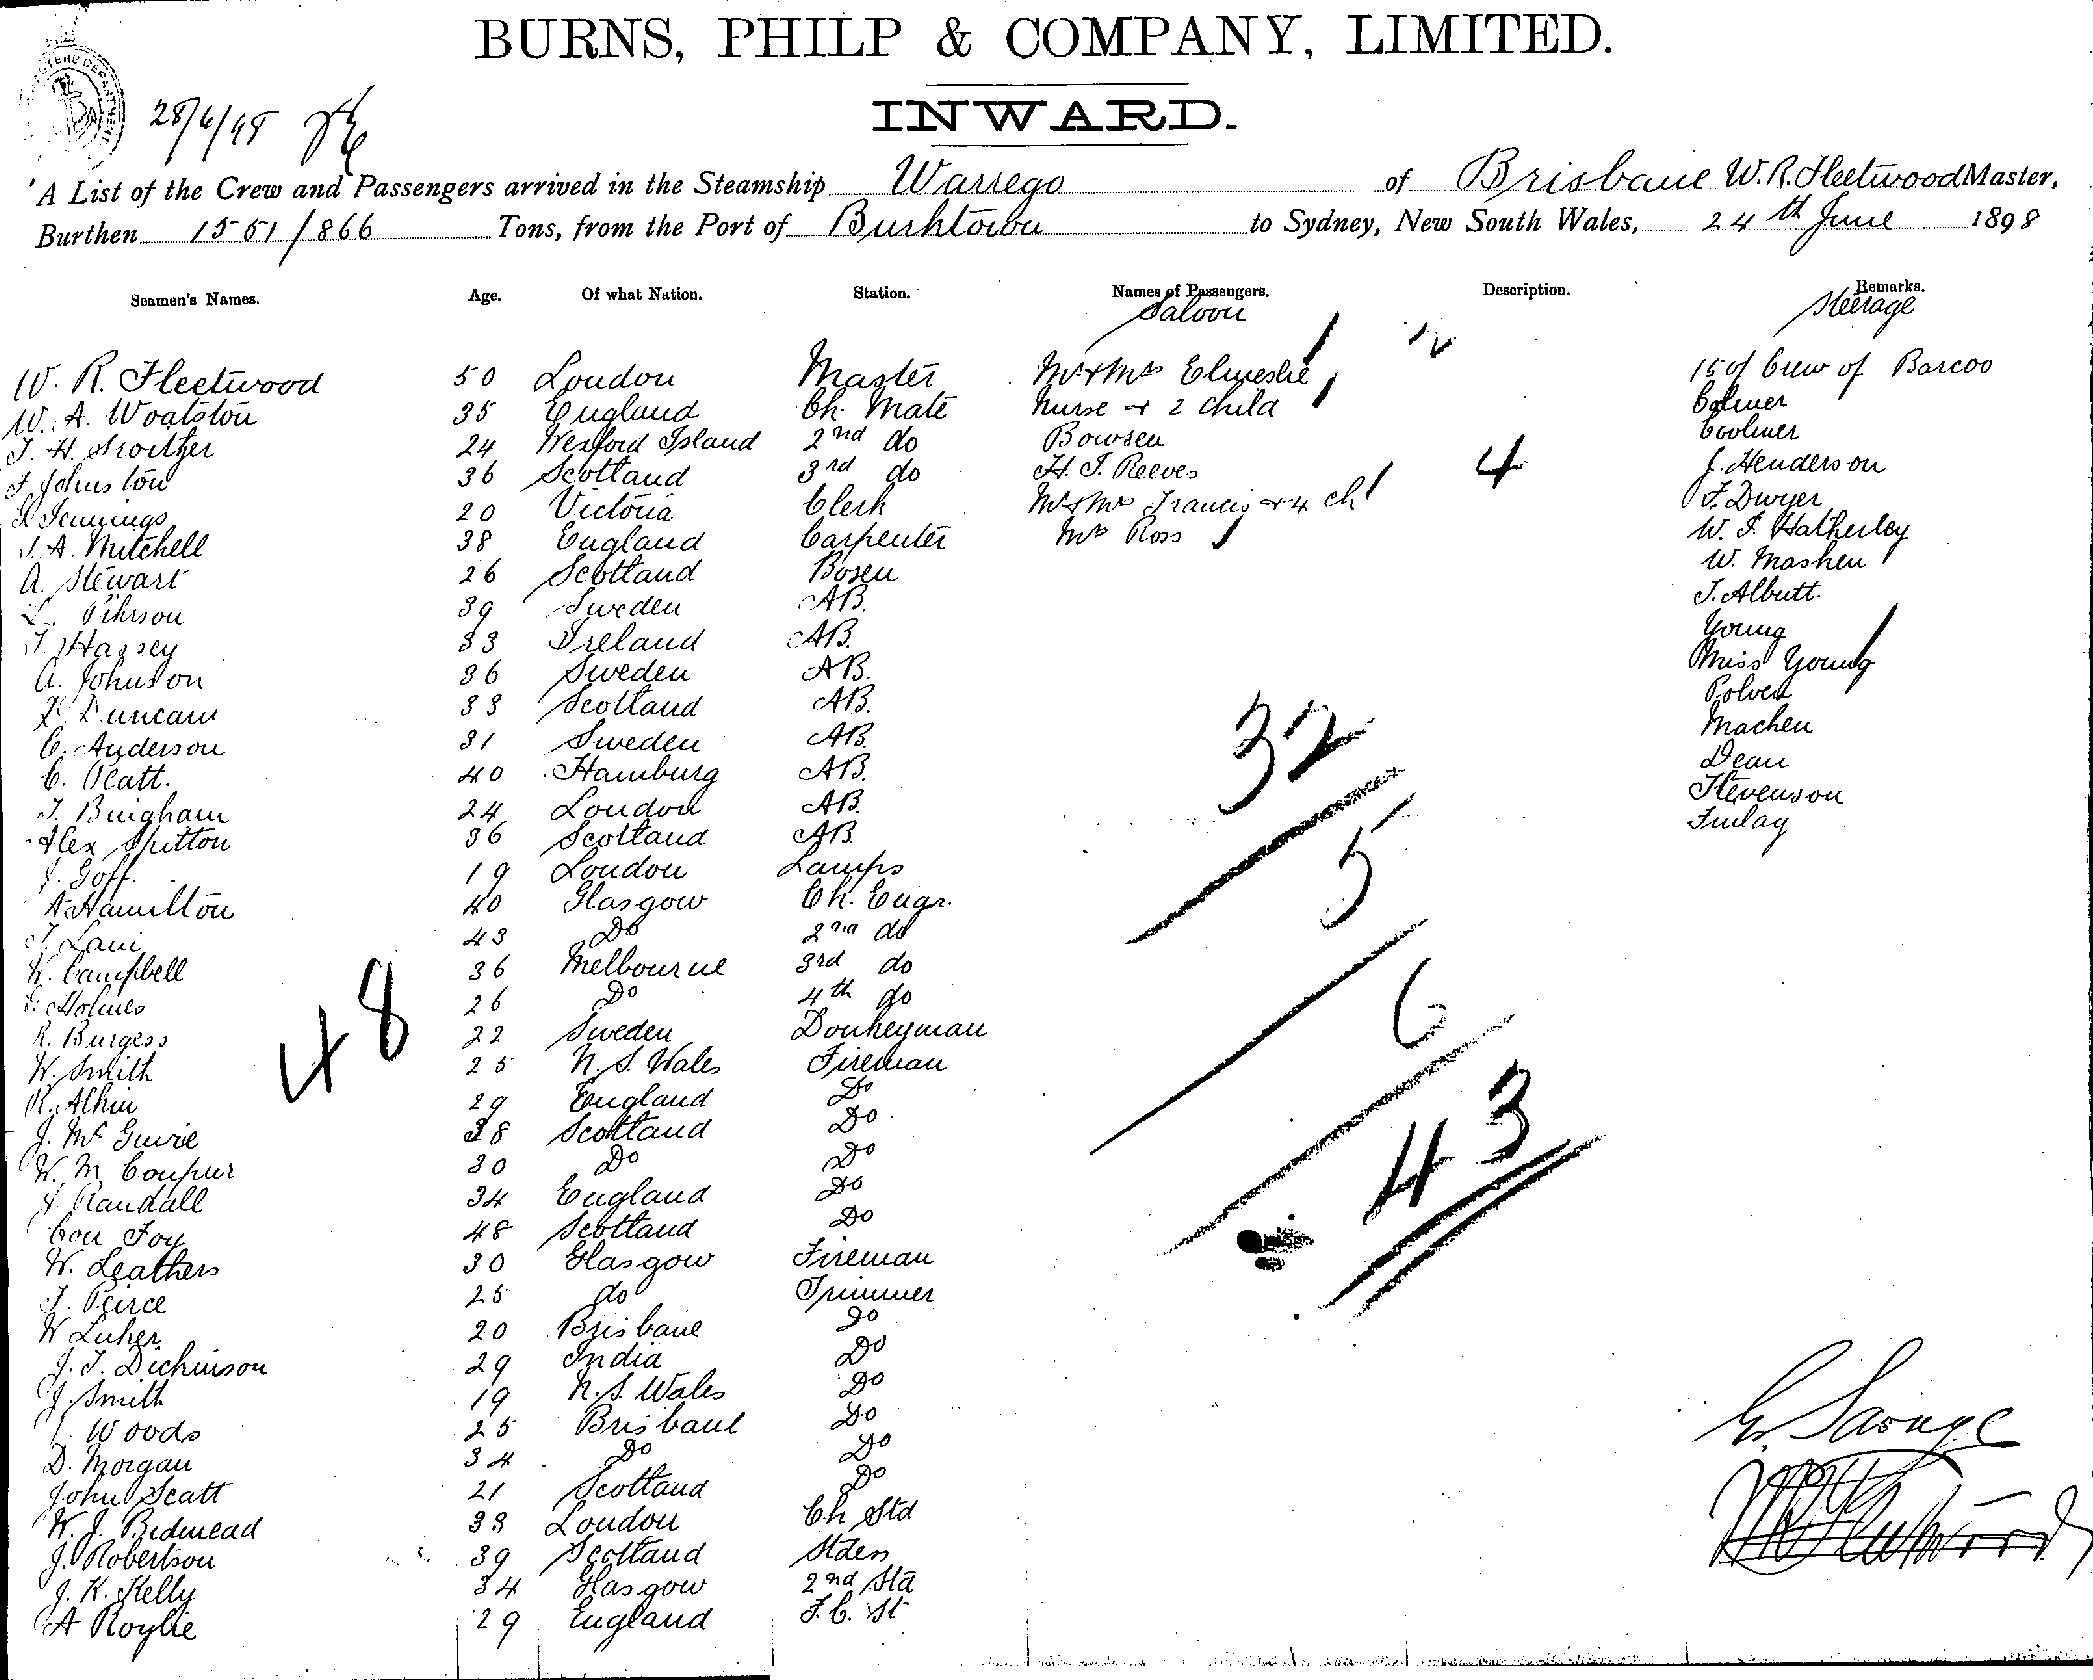 BURNS, PHILP & COMPANY, LIMITED.
INWARD.
28/6/98
A List of the Crew and Passengers arrived in the Steamship Warrego of Brisbane W. R. Fleetwood Master,
Burthen 1551/866 Tons, from the Port of to Sydney, New South Wales, 24th June 1898
Seamen's Names. Age. Of what Nation. Station. Names of Passengers. Description. Remarks.
Saloon Steerage
W. R. Fleetwood 50 London Master Mr & Mrs Elmeslie 15 of Crew of Barcoo
W. A. Woolston 35 England Ch. Mate Nurse & 2 child Colmer
24 Wexford Island 2nd do Bowsen Coolmer
Johnston 36 Scotland 3rd do H. J. Reeves J. Henderson
Jennings 20 Victoria Clerk Mr & Mrs Francis & 4 ch 4 F. Dwyer
J. A. Mitchell 38 England Carpenter Mrs Ross W. J. Hatherley
A. Stewart 26 Scotland Bosen W. Mashen
Pihrson 39 Sweden AB. J. Albutt.
Hassey 33 Ireland AB. Young
A. Johnson 36 Sweden AB. Miss Young
Duncan 33 Scotland AB. Polven
C. Anderson 31 Sweden AB. Machen
C. Platt. 40 Hamburg AB. Dean
J. Bingham 24 London AB. Stevenson
Alex Spitton 36 Scotland AB. Finlay
J. Goff. 19 London Lamps
A Hamilton 40 Glasgow Ch. Engr.
43 Do 2nd do
Campbell 36 Melbourne 3rd do
Holmes 26 Do 4th do
R. Burgess 22 Sweden Donkeyman
W. Smith 25 N. S. Wales Fireman
R. Alkin 29 England Do
J. Mc Guire 38 Scotland Do
W. M. Coupur 30 Do Do
Randall 34 England Do
Con Foy 48 Scotland Do
W. Leathers 30 Glasgow Fireman
J. Peirce 25 do Trimmer
W Luher 20 Brisbane Do
J. J. Dickinson 29 India Do
J. Smith 19 N. S. Wales Do
Woods 25 Brisbane Do
D. Morgan 34 Do Do
John Scatt 21 Scotland Do
W. J. Bidmead 33 London Ch Std
J. Robertson 39 Scotland Stdess
J. K. Kelly 34 Glasgow 2nd Std
A Roylie 29 England F. C. St
48
32
5
6
43
G. Savage
W R Fleetwood